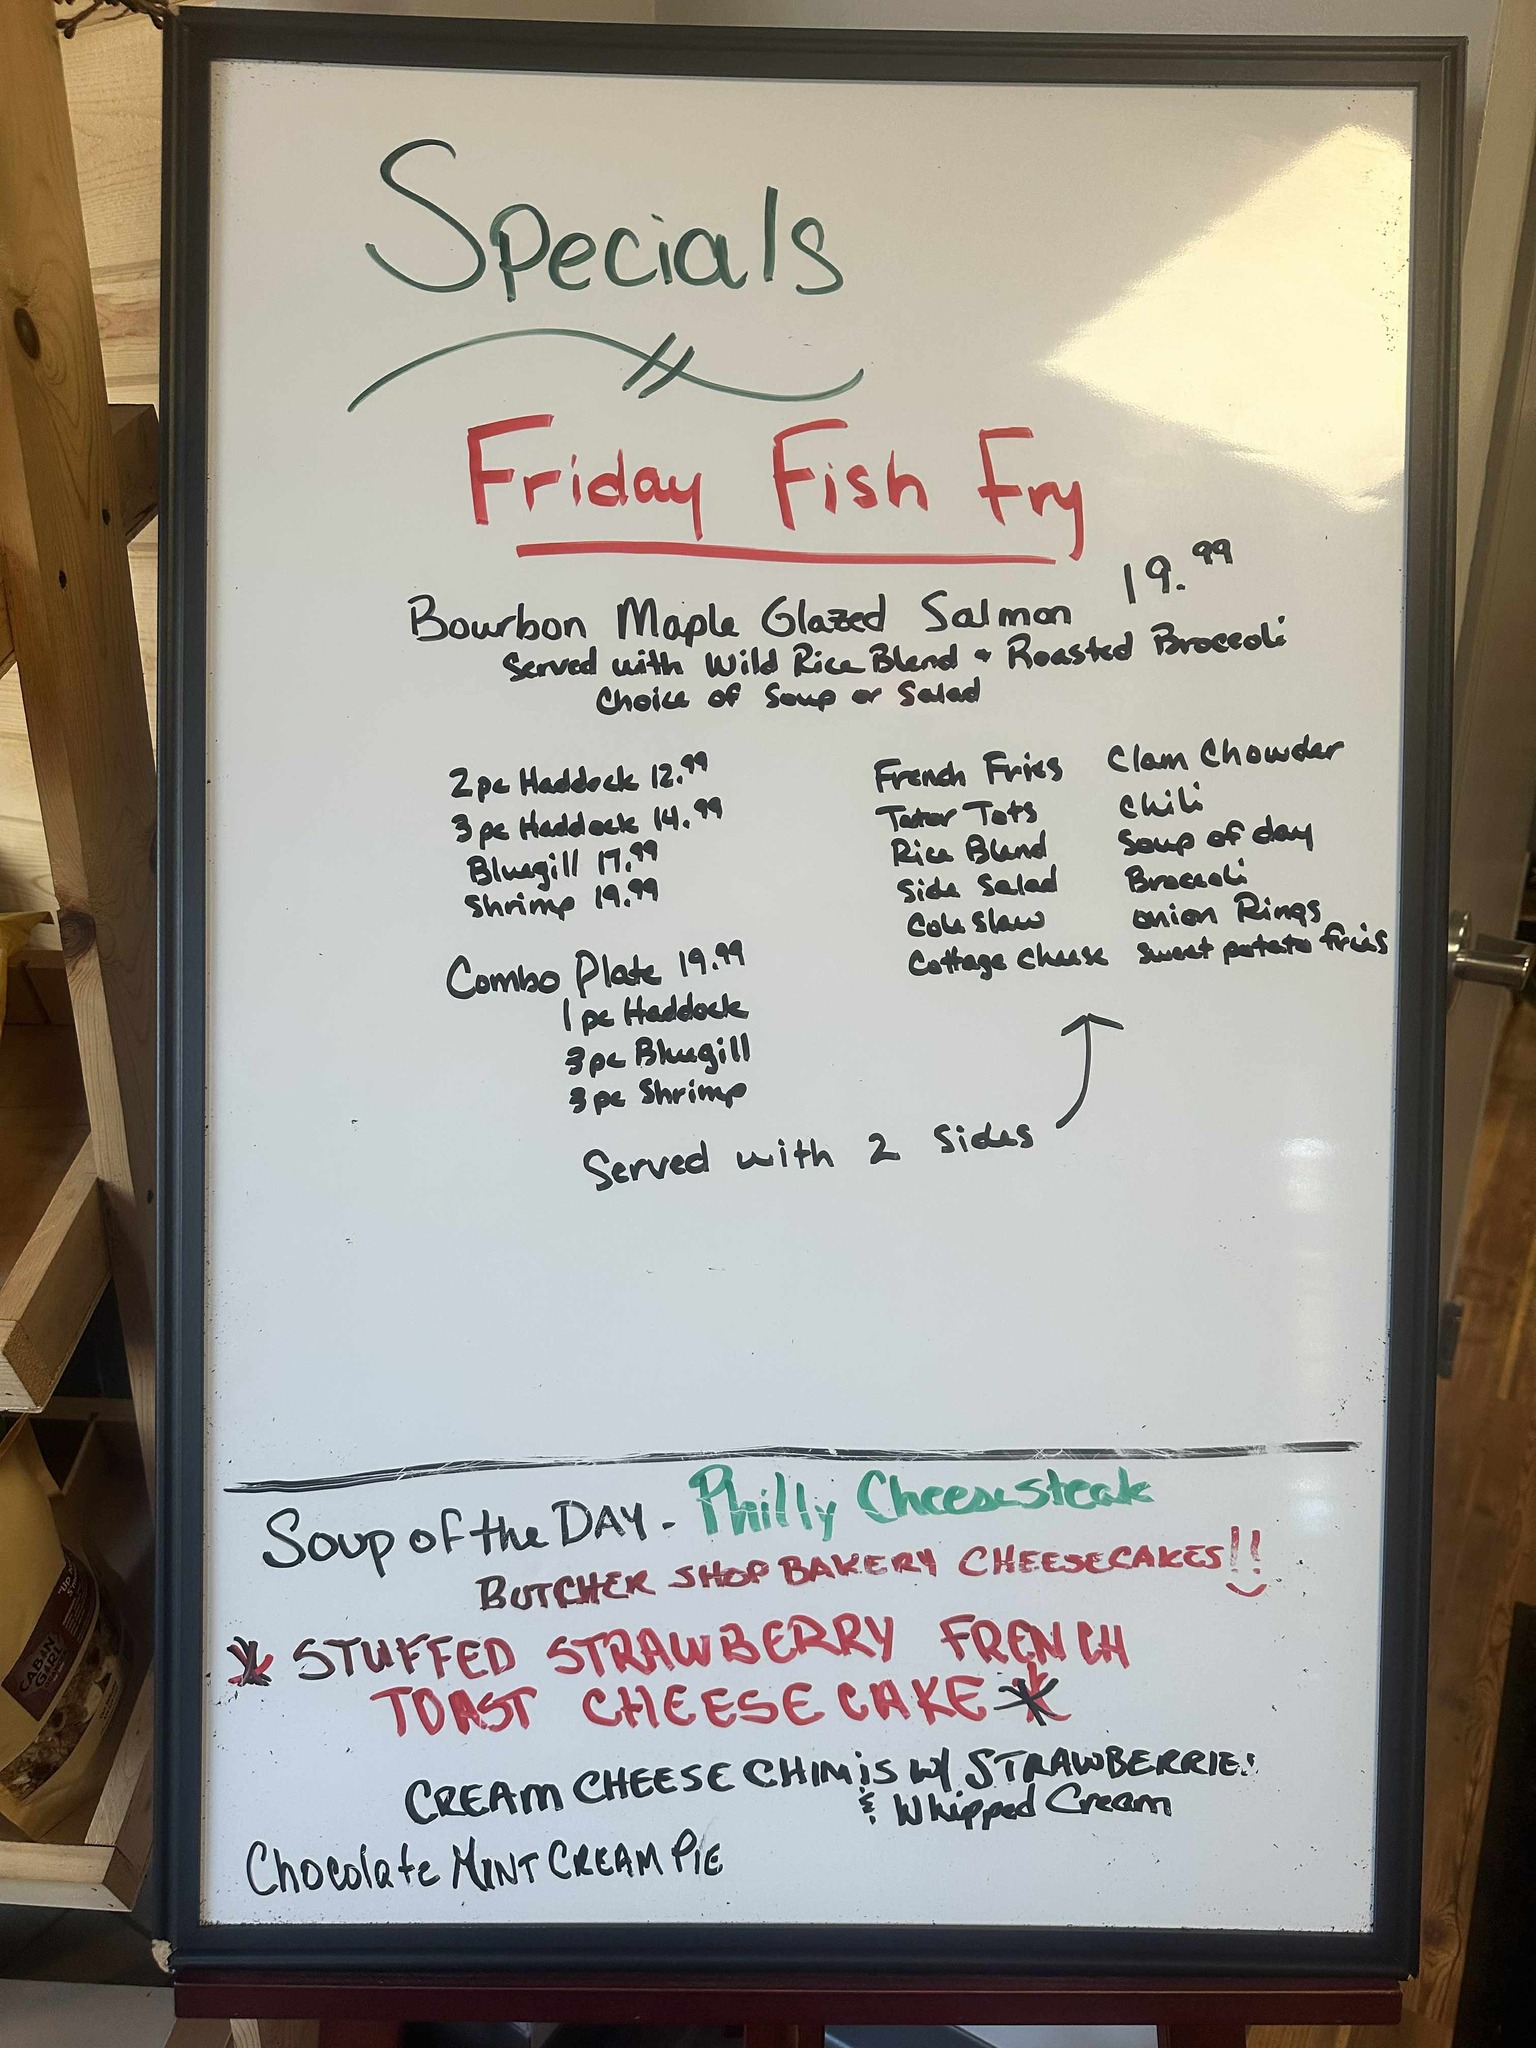 Specials
Friday Fish Fry
Bourbon Maple Glazed Salmon 19.99
Served with Wild Rice Blend + Roasted Broccoli
Choice of Soup or Salad
2 pc Haddock 12.99
3 pc Haddock 14.99
Bluegill 17.99
Shrimp 19.99
Combo Plate 19.99
1 pc Haddock
3 pc Bluegill
3 pc Shrimp
French Fries
Tator Tots
Rice Blend
Side Salad
Cole Slaw
Cottage Cheese
Clam Chowder
Chili
Soup of day
Broccoli
onion Rings
Sweet potato fries
Served with 2 Sides
Soup of the DAY - Philly Cheesesteak
BUTCHER SHOP BAKERY CHEESECAKES!!
* STUFFED STRAWBERRY FRENCH
TOAST CHEESECAKE *
CREAM CHEESE CHIMIS W/ STRAWBERRIES
& Whipped Cream
Chocolate MINT CREAM PIE
CABIN